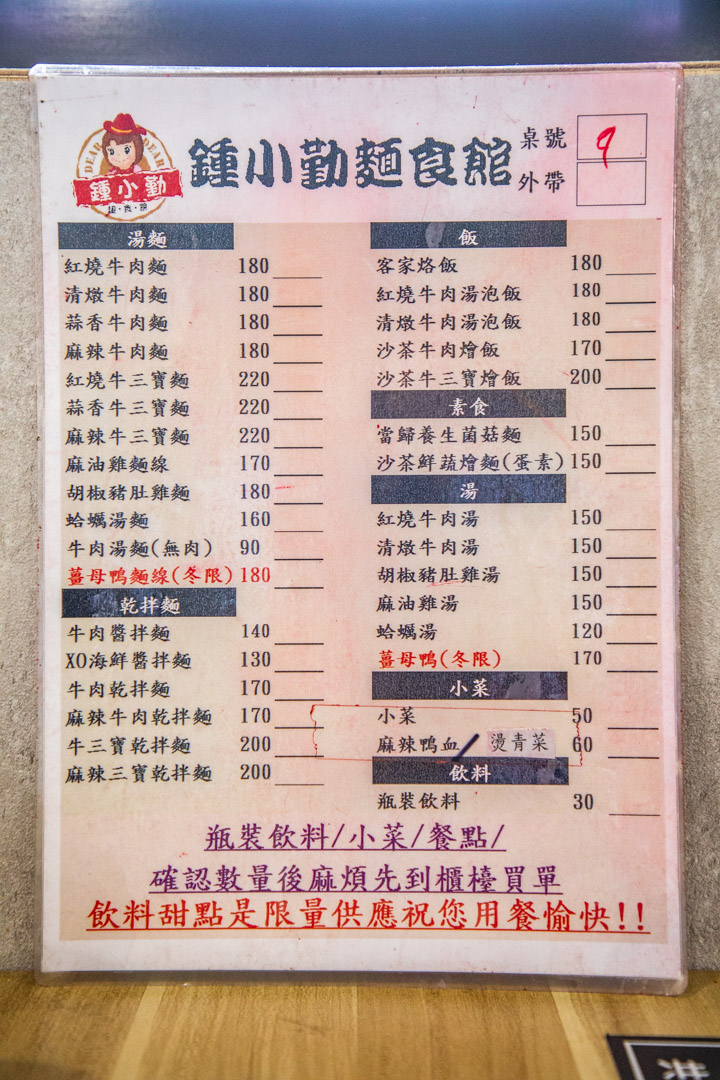 DEAR DEAR
鍾小勤
鍾小勤麵食館
桌號 9
外帶
湯麵
紅燒牛肉麵 180
清燉牛肉麵 180
蒜香牛肉麵 180
麻辣牛肉麵 180
紅燒牛三寶麵 220
蒜香牛三寶麵 220
麻辣牛三寶麵 220
麻油雞麵線 170
胡椒豬肚雞麵 180
蛤蠣湯麵 160
牛肉湯麵(無肉) 90
薑母鴨麵線(冬限) 180
乾拌麵
牛肉醬拌麵 140
XO海鮮醬拌麵 130
牛肉乾拌麵 170
麻辣牛肉乾拌麵 170
牛三寶乾拌麵 200
麻辣三寶乾拌麵 200
飯
客家烙飯 180
紅燒牛肉湯泡飯 180
清燉牛肉湯泡飯 180
沙茶牛肉燴飯 170
沙茶牛三寶燴飯 200
素食
當歸養生菌菇麵 150
沙茶鮮蔬燴麵(蛋素) 150
湯
紅燒牛肉湯 150
清燉牛肉湯 150
胡椒豬肚雞湯 150
麻油雞湯 150
蛤蠣湯 120
薑母鴨(冬限) 170
小菜
小菜 50
麻辣鴨血/燙青菜 60
飲料
瓶裝飲料 30
瓶裝飲料/小菜/餐點/
確認數量後麻煩先到櫃檯買單
飲料甜點是限量供應祝您用餐愉快!!